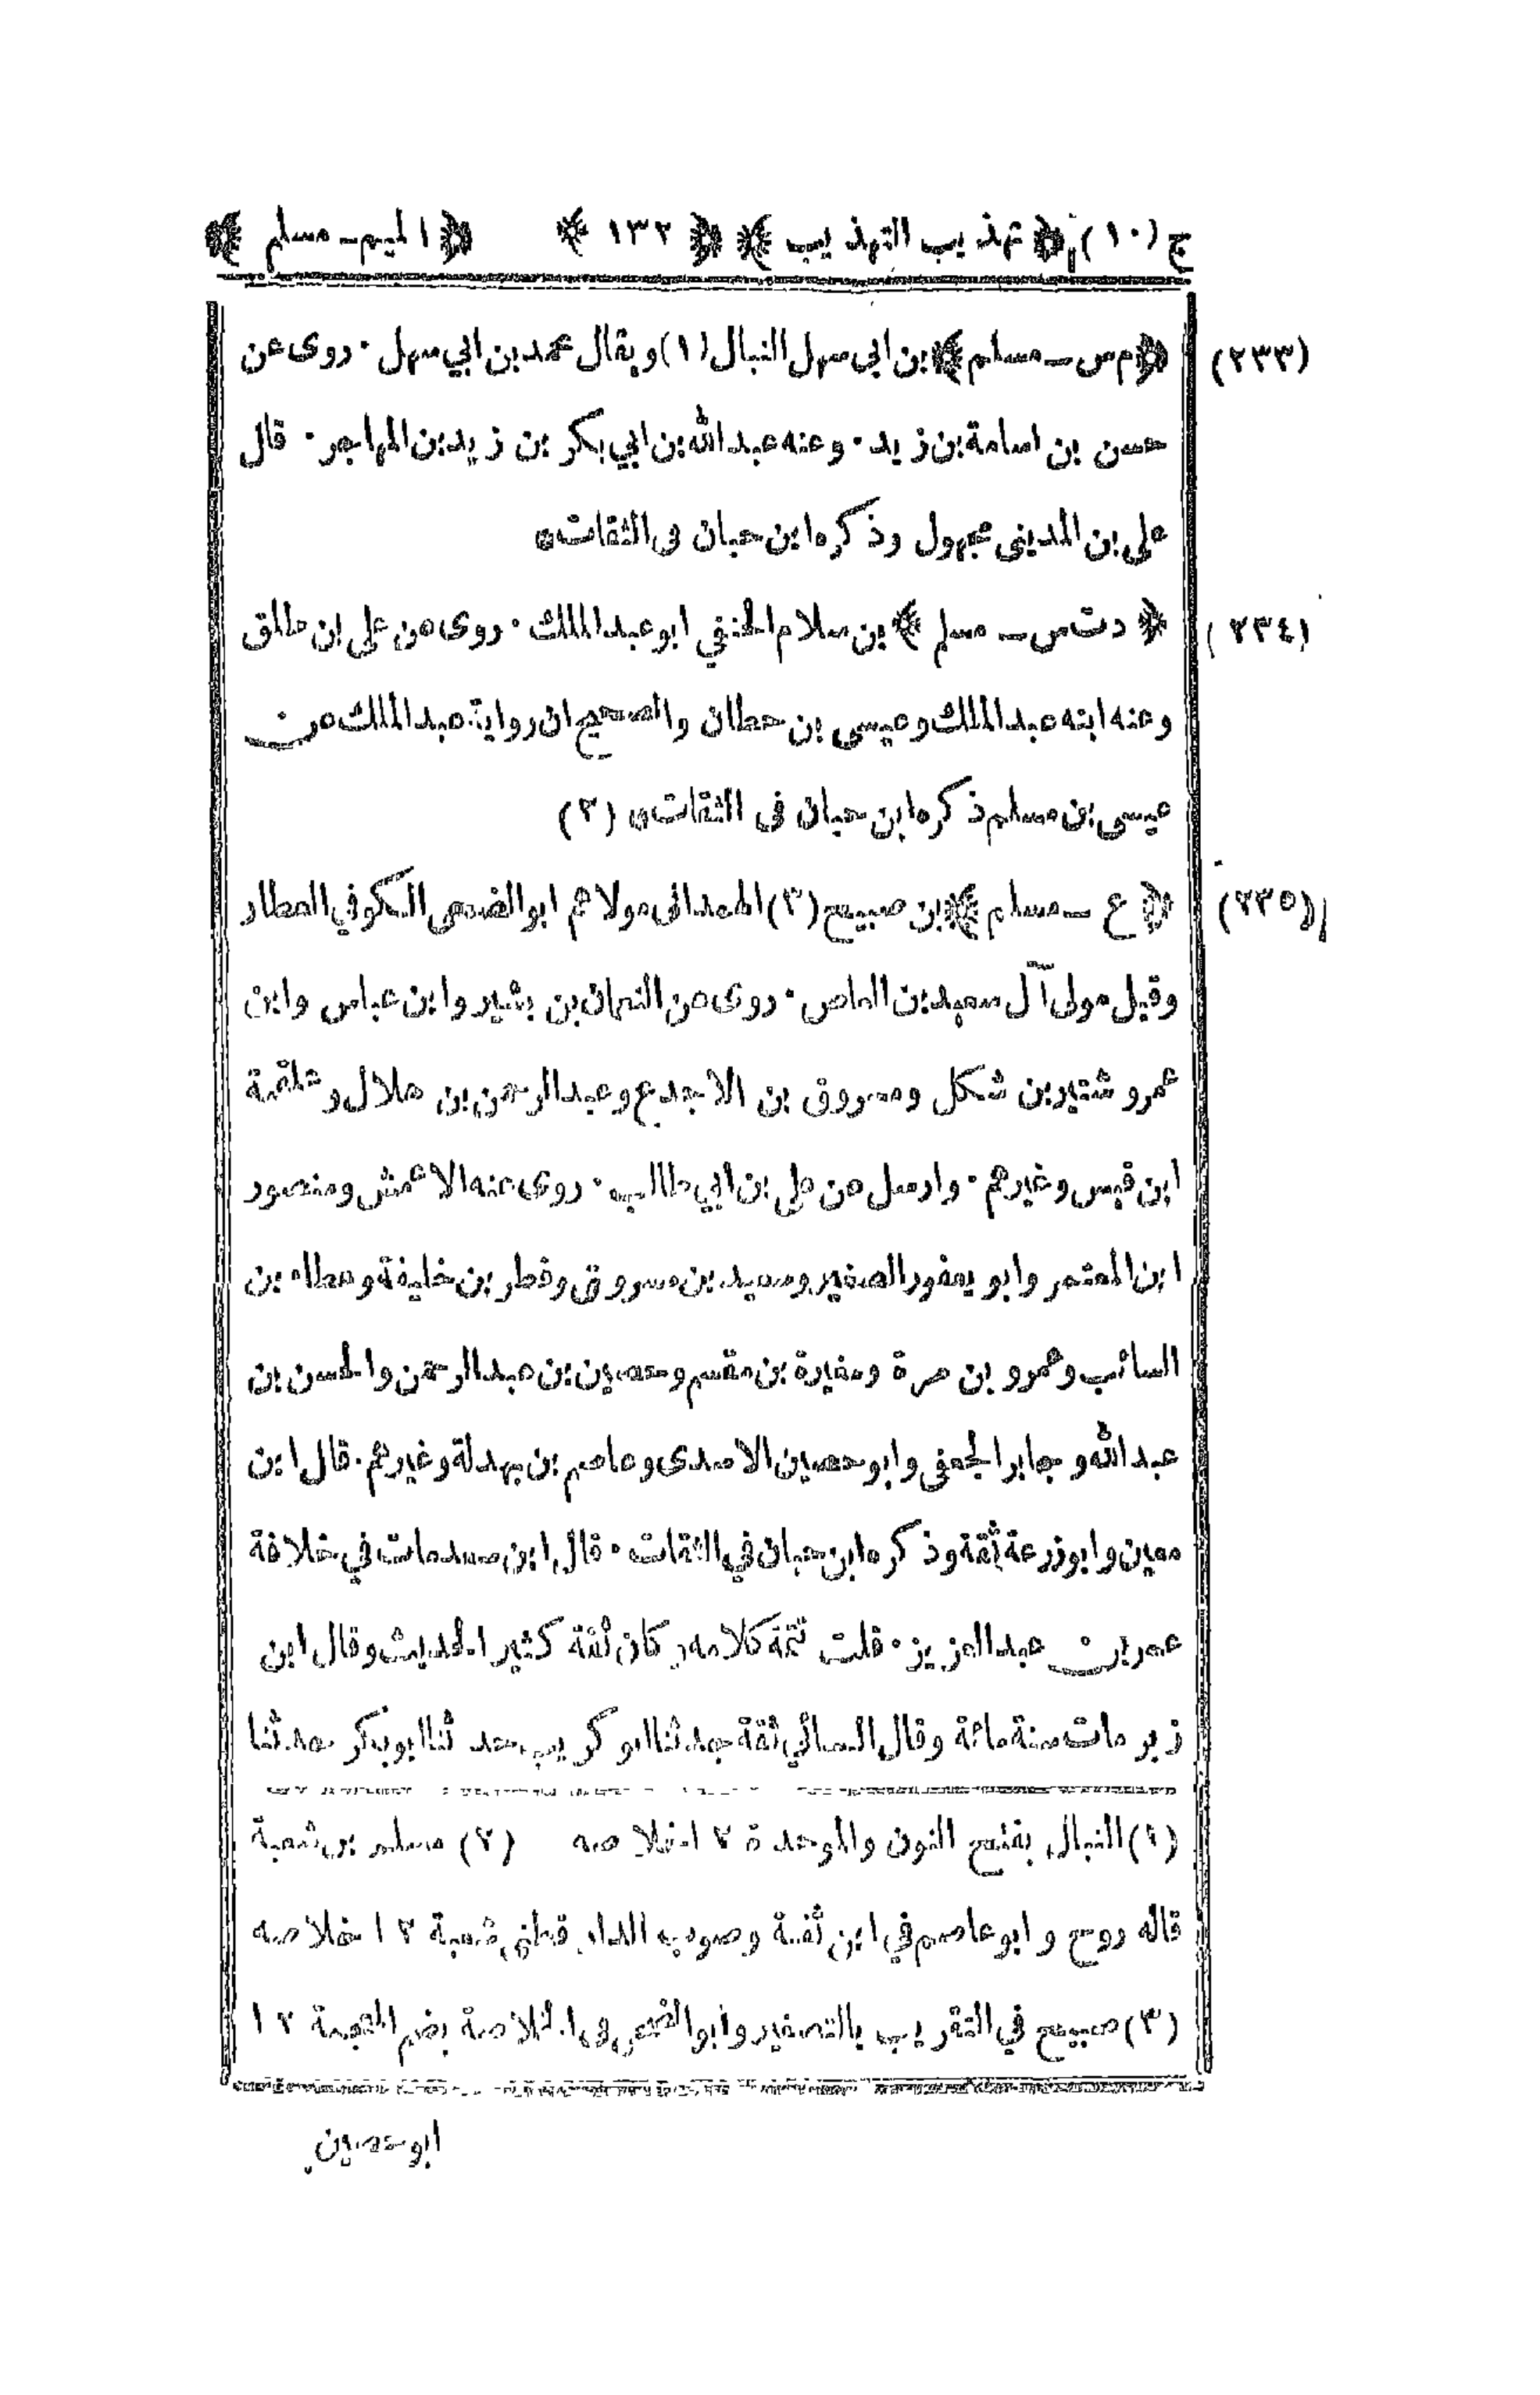 ج (١٠) ﴿ تهذيب التهذيب ﴾ ﴿ ١٣٢ ﴾ ﴿ الميم - مسلم ﴾
(٢٣٣) ﴿ م س - مسلم ﴾ بن ابي سهل النبال (١) ويقال محمد بن ابي سهل ٠ روى عن
حسن بن اسامة بن زيد ٠ وعنه عبد الله بن ابي بكر بن زيد بن المهاجر ٠ قال
علي بن المديني مجهول وذكره ابن حبان فى الثقات ۞
(٢٣٤) ﴿ د ت س - مسلم ﴾ بن سلام الحنفي ابو عبد الملك ٠ روى عن علي بن طلق
وعنه ابنه عبد الملك وعيسى بن حطان والصحيح ان رواية عبد الملك عن
عيسى بن مسلم ذكره ابن حبان فى الثقات ۞ (٢)
(٢٣٥) ﴿ ع - مسلم ﴾ بن صبيح (٣) الهمدانى مولاهم ابو الضحى الكوفي العطار
وقيل مولى آل سعيد بن العاص ٠ روى عن النعمان بن بشير وابن عباس وابن
عمر وشتير بن شكل ومسروق بن الاجدع وعبد الرحمن بن هلال وعلقمة
ابن قيس وغيرهم ٠ وارسل عن علي بن ابي طالب ٠ روى عنه الاعمش ومنصور
ابن المعتمر وابو يعفور الصغير وسعيد بن مسروق وفطر بن خليفة وعطاء بن
السائب وعمرو بن مرة ومغيرة بن مقسم وحصين بن عبد الرحمن والحسن بن
عبد الله وجابر الجعفي وابو حصين الاسدى وعاصم بن بهدلة وغيرهم ٠ قال ابن
معين وابو زرعة ثقة وذكره ابن حبان في الثقات ٠ قال ابن سعد مات في خلافة
عمر بن عبد العزيز ٠ قلت تتمة كلامه وكان ثقة كثير الحديث وقال ابن
زبر مات سنة مائة وقال النسائي ثقة حدثنا ابو كريب حدثنا ابو بكر حدثنا
(١) النبال بفتح النون والموحدة ١٢ خلاصه (٢) مسلم بن شعبة
قاله روح وابو عاصم في ابن ثفنة وصوب الدارقطني شعبة ١٢ خلاصه
(٣) صبيح في التقريب بالتصغير وابو الضحى فى الخلاصة بضم المعجمة ١٢
ابو حصين